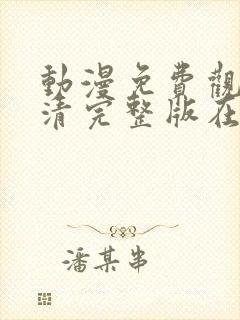 動漫免費觀
清完整版在
潘某串